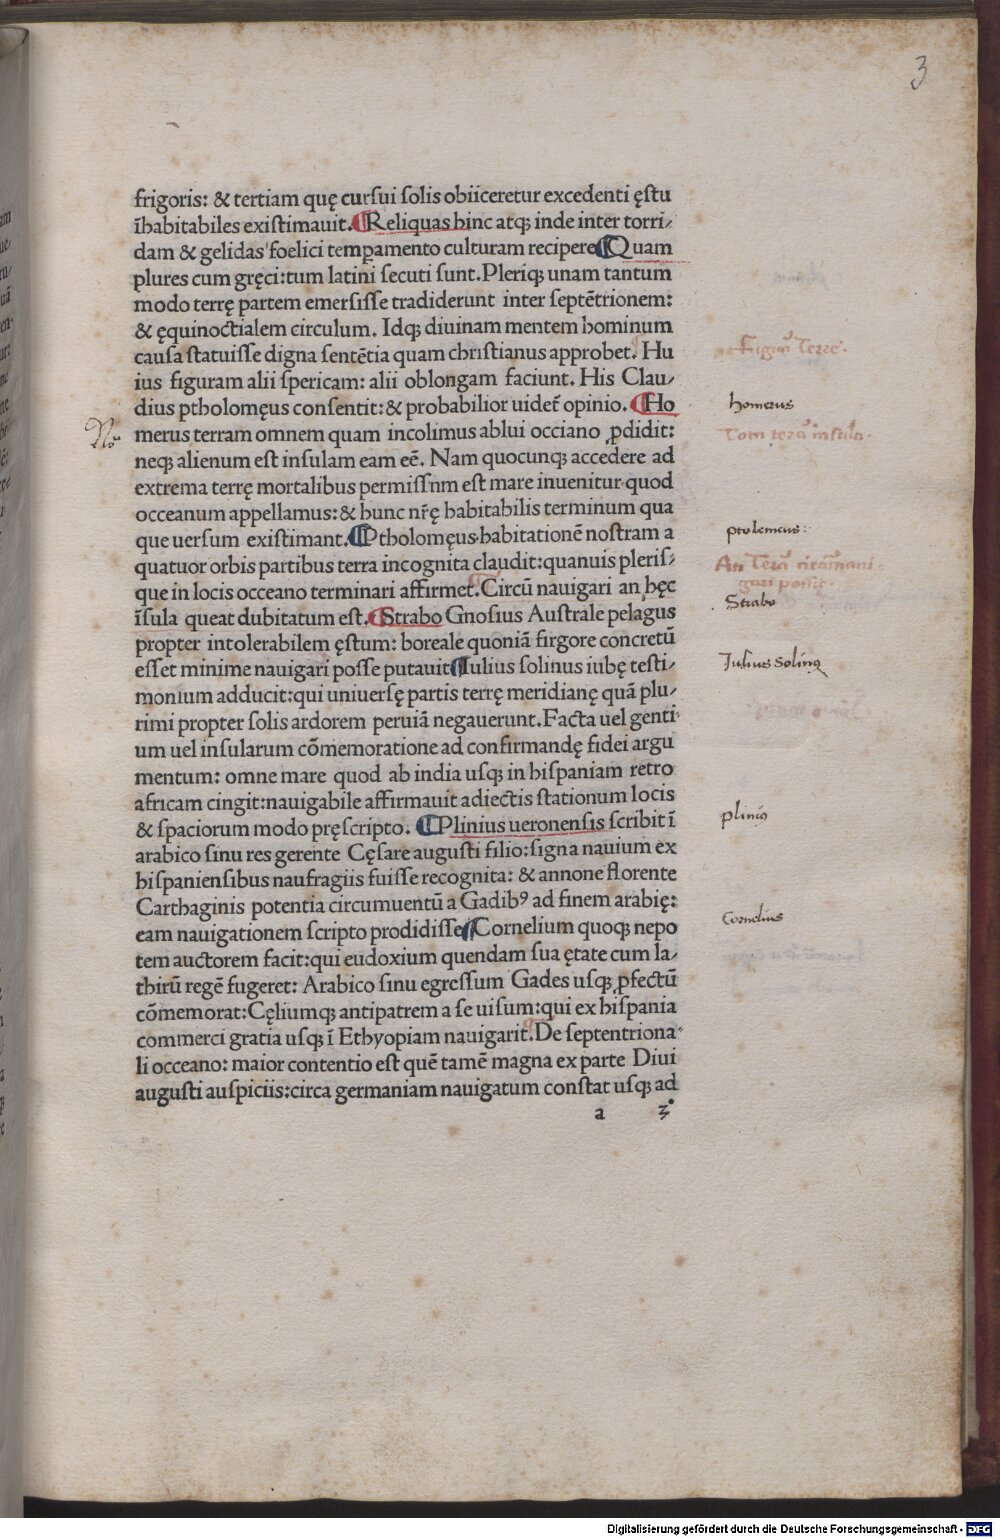 3
frigoris: & tertiam quę cursui solis obiiceretur excedenti ęstu
īhabitabiles existimauit. Reliquas hinc atqꝫ inde inter torri/
dam & gelidas foelici tempamento culturam recipere Quam
plures cum gręci: tum latini secuti sunt. Pleriqꝫ unam tantum
modo terrę partem emersisse tradiderunt inter septētrionem:
& ęquinoctialem circulum. Idqꝫ diuinam mentem hominum
causa statuisse digna sentētia quam christianus approbet. Hu
ius figuram alii spericam: alii oblongam faciunt. His Clau/
dius ptholomęus consentit: & probabilior uidet̄ opinio. Ho
merus terram omnem quam incolimus ablui occiano ꝓdidit:
neqꝫ alienum est insulam eam eē. Nam quocunqꝫ accedere ad
extrema terrę mortalibus permissnm est mare inuenitur quod
occeanum appellamus: & hunc nr̄ę habitabilis terminum qua
que uersum existimant. Ptholomęus habitationē nostram a
quatuor orbis partibus terra incognita claudit: quanuis pleris/
que in locis occeano terminari affirmet. Circū nauigari an hęc
īsula queat dubitatum est. Strabo Gnosius Australe pelagus
propter intolerabilem ęstum: boreale quoniā firgore concretū
esset minime nauigari posse putauit Iulius solinus iubę testi/
monium adducit: qui uniuersę partis terrę meridianę quā plu/
rimi propter solis ardorem peruiā negauerunt. Facta uel genti
um uel insularum cōmemoratione ad confirmandę fidei argu
mentum: omne mare quod ab india usqꝫ in hispaniam retro
africam cingit: nauigabile affirmauit adiectis stationum locis
& spaciorum modo pręscripto. Plinius ueronensis scribit ī
arabico sinu res gerente Cęsare augusti filio: signa nauium ex
hispaniensibus naufragiis fuisse recognita: & annone florente
Carthaginis potentia circumuentū a Gadibꝰ ad finem arabię:
eam nauigationem scripto prodidisse Cornelium quoqꝫ nepo
tem auctorem facit: qui eudoxium quendam sua ętate cum la/
thirū regē fugeret: Arabico sinu egressum Gades usqꝫ ꝓfectū
cōmemorat: Cęliumqꝫ antipatrem a se uisum: qui ex hispania
commerci gratia usqꝫ ī Ethyopiam nauigarit. De septentriona
li occeano: maior contentio est quē tamē magna ex parte Diui
augusti auspiciis: circa germaniam nauigatum constat usqꝫ ad
a 3
Figura Terre.
homerus
ptolemeus:
Strabo
Julius Solinꝰ
plinio
Cornelius
Digitalisierung gefördert durch die Deutsche Forschungsgemeinschaft - DFG